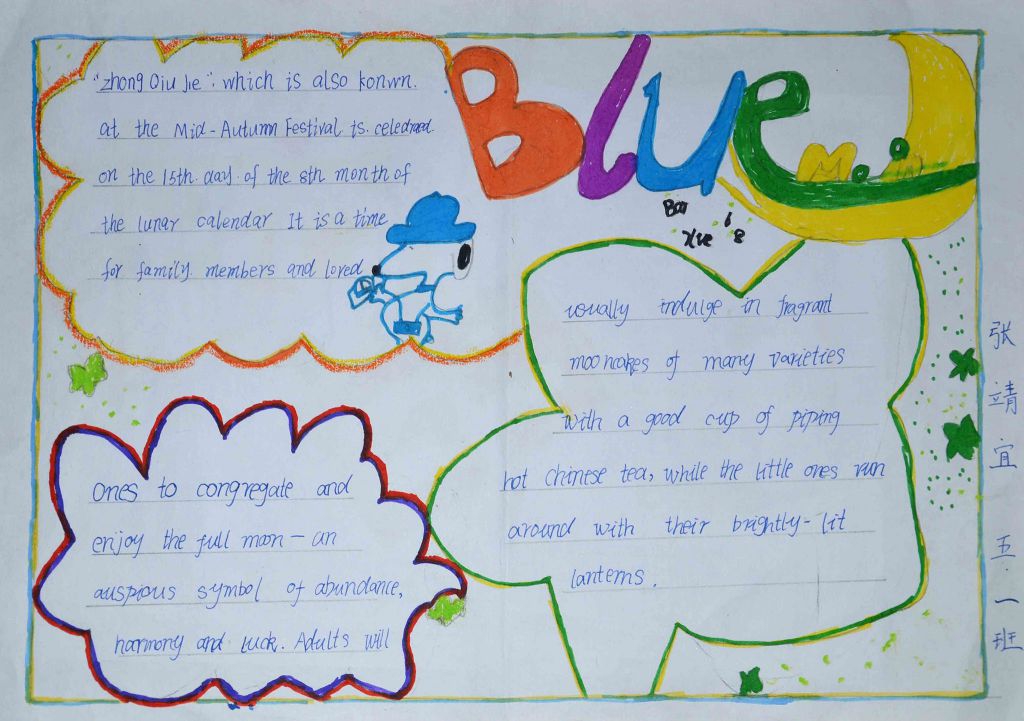 Blue
Moon
"zhong Qiu Jie". which is also konwn.
at the Mid-Autumn Festival is celedraed
on the 15th day of the 8th month of
the lunar calendar It is a time
for family members and loved
Ones to congregate and
enjoy the full moon - an
auspious symbol of abundance,
harmony and luck. Adults will
usually indulge in fragrant
mooncakes of many varieties
with a good cup of piping
hot Chinese tea, while the little ones run
around with their brightly-lit
lanterns.
张靖宜五.一班